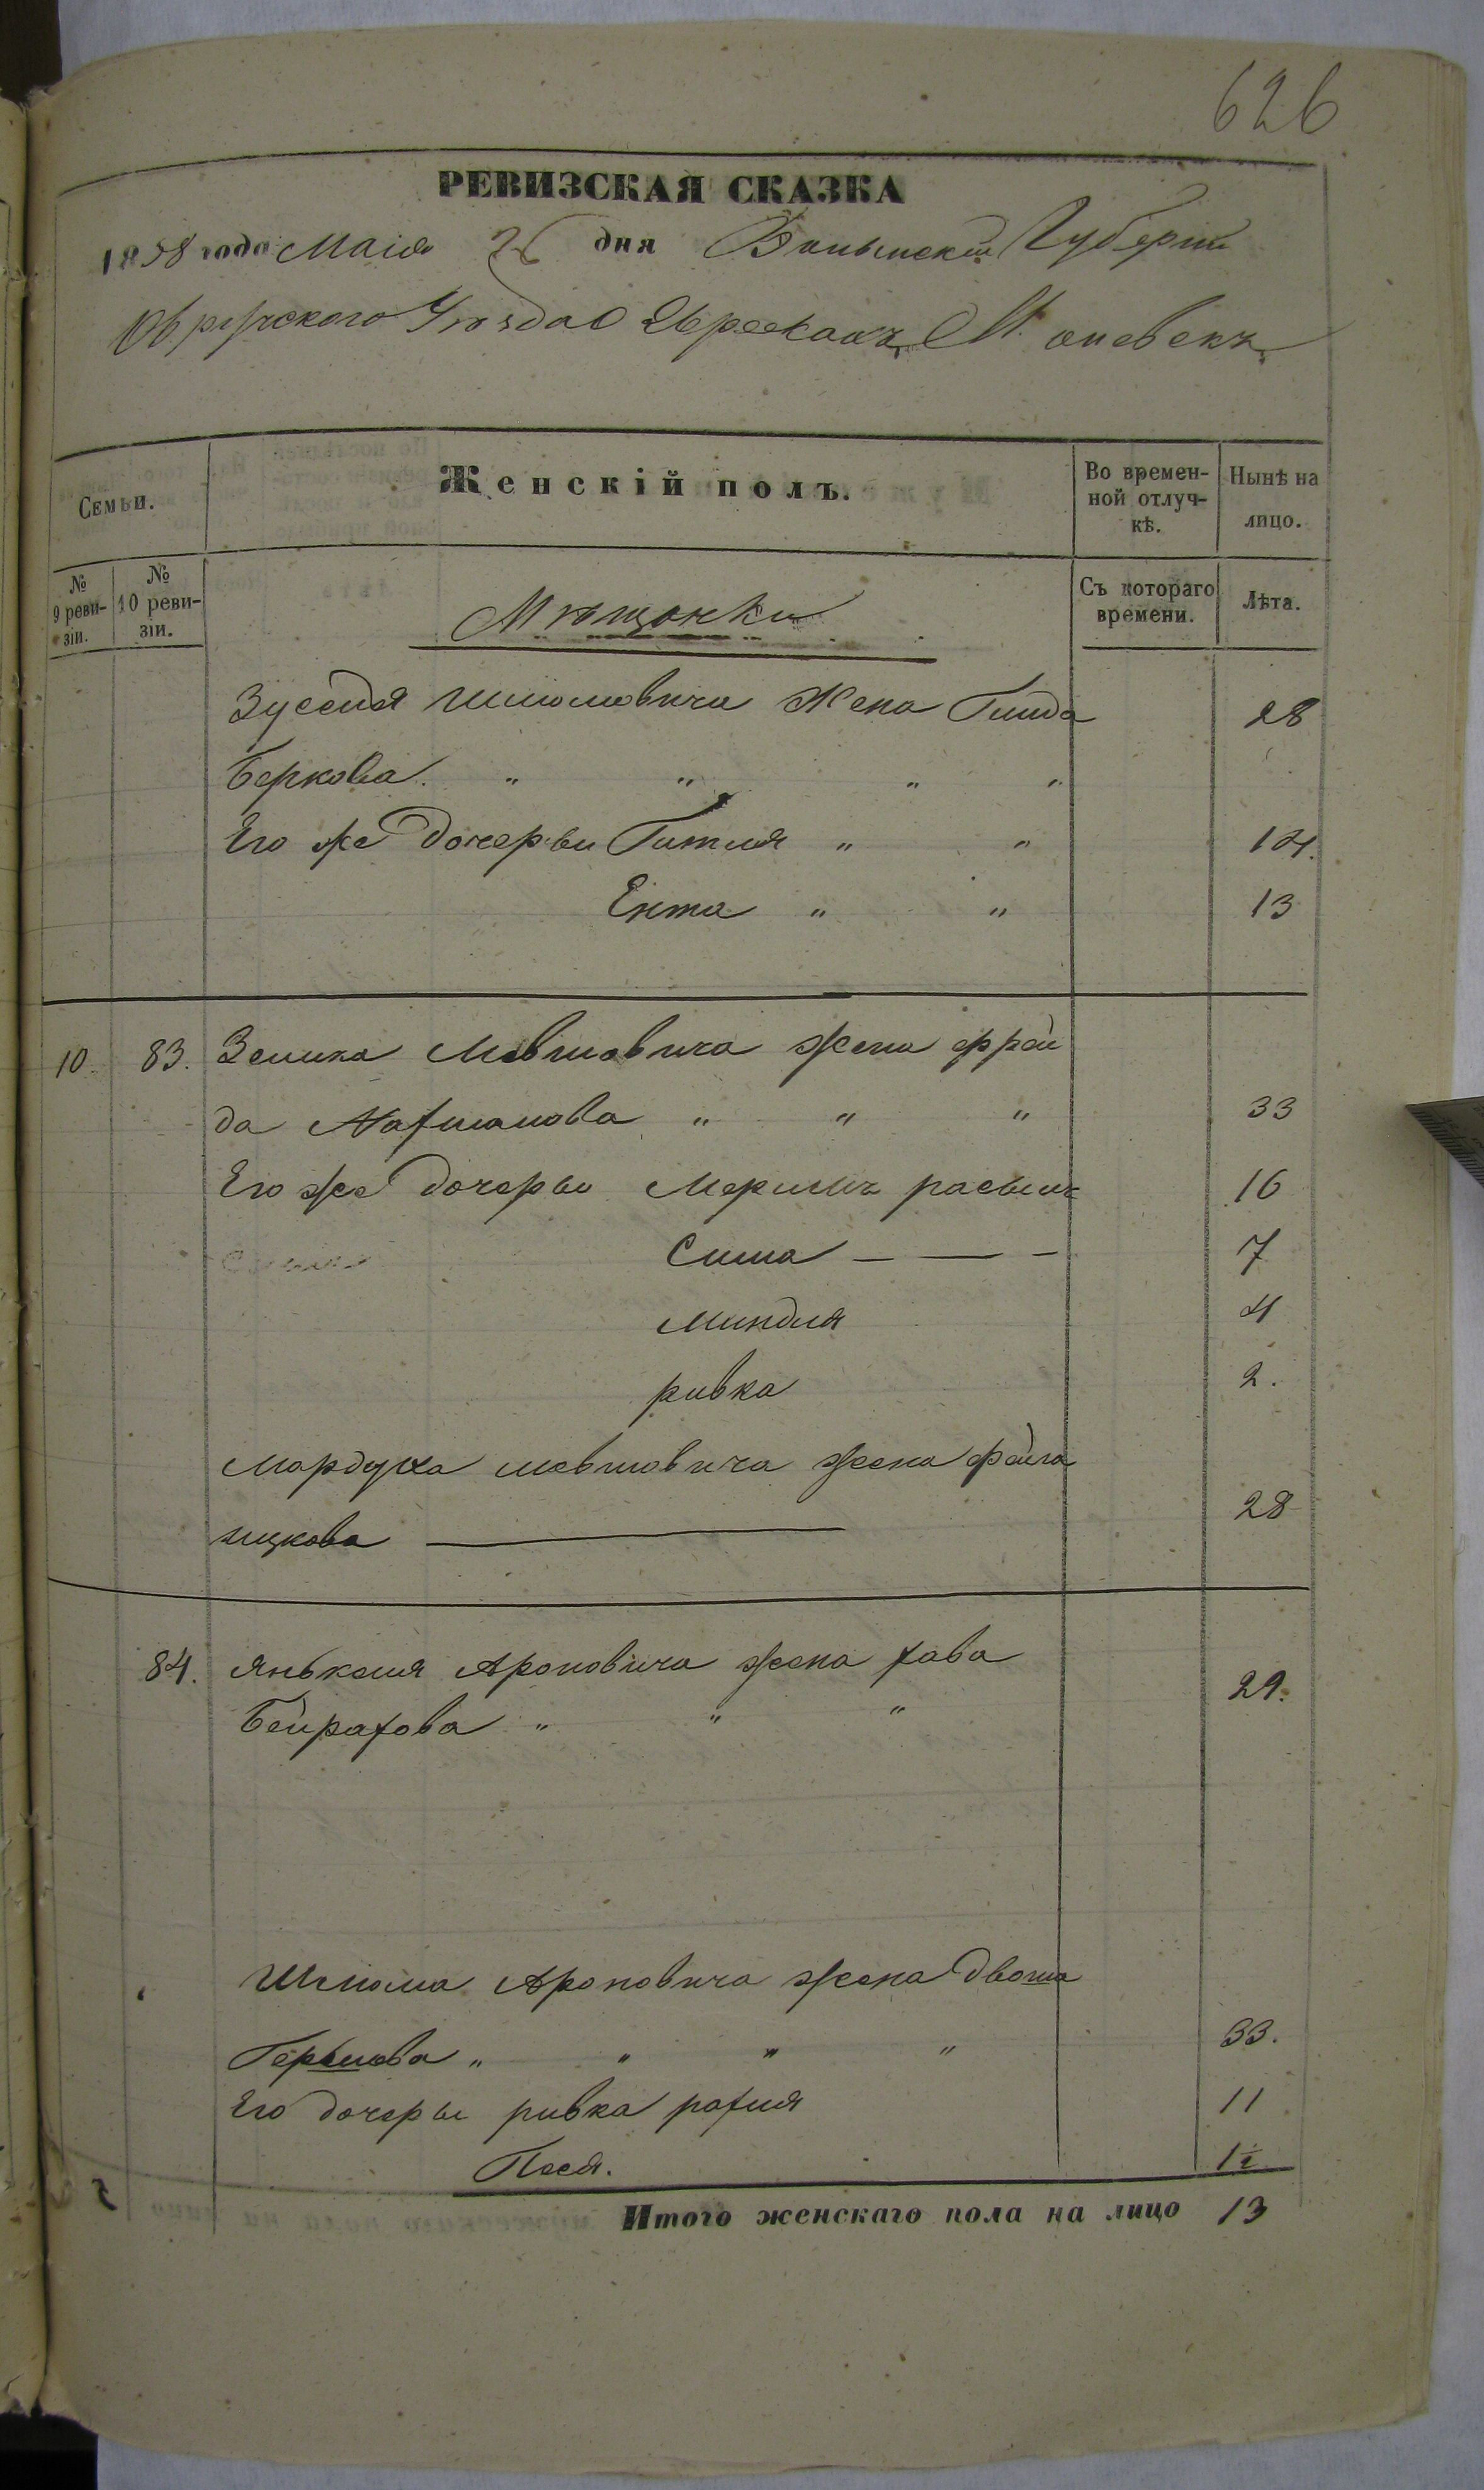 626
РЕВИЗСКАЯ СКАЗКА
1858 года Маія 26 дня Волынской Губерніи
Овручского Уѣзда О Евреяхъ М.
Семьи.
Женскій полъ.
Во времен-
ной отлуч-
кѣ.
Нынѣ на
лицо.
№
9 реви-
зіи.
№
10 реви-
зіи.
Мѣщанки
Съ котораго
времени.
Лѣта.
Зуселя Шліомовича Жена Гинда 28
Беркова " " " "
Его же дочерьи Гитля " " 14.
Ента " " 13
10. 83. Зелика Мовшовича жена Фрей
да Нахманова " " " 33
Его же дочерьи 16
Сима — — — 7
Миндля 4
ривка 2.
Мордуха мовшовича жена фейга
ицкова — 28
84. Янькеля Ароновича жена хава
Бейрахова " " " 29.
Шліома Ароновича жена Двоша
Гершова " " " " 33.
Его дочеры ривка рахля 11
Песя. 1½
Итого женскаго пола на лицо 13